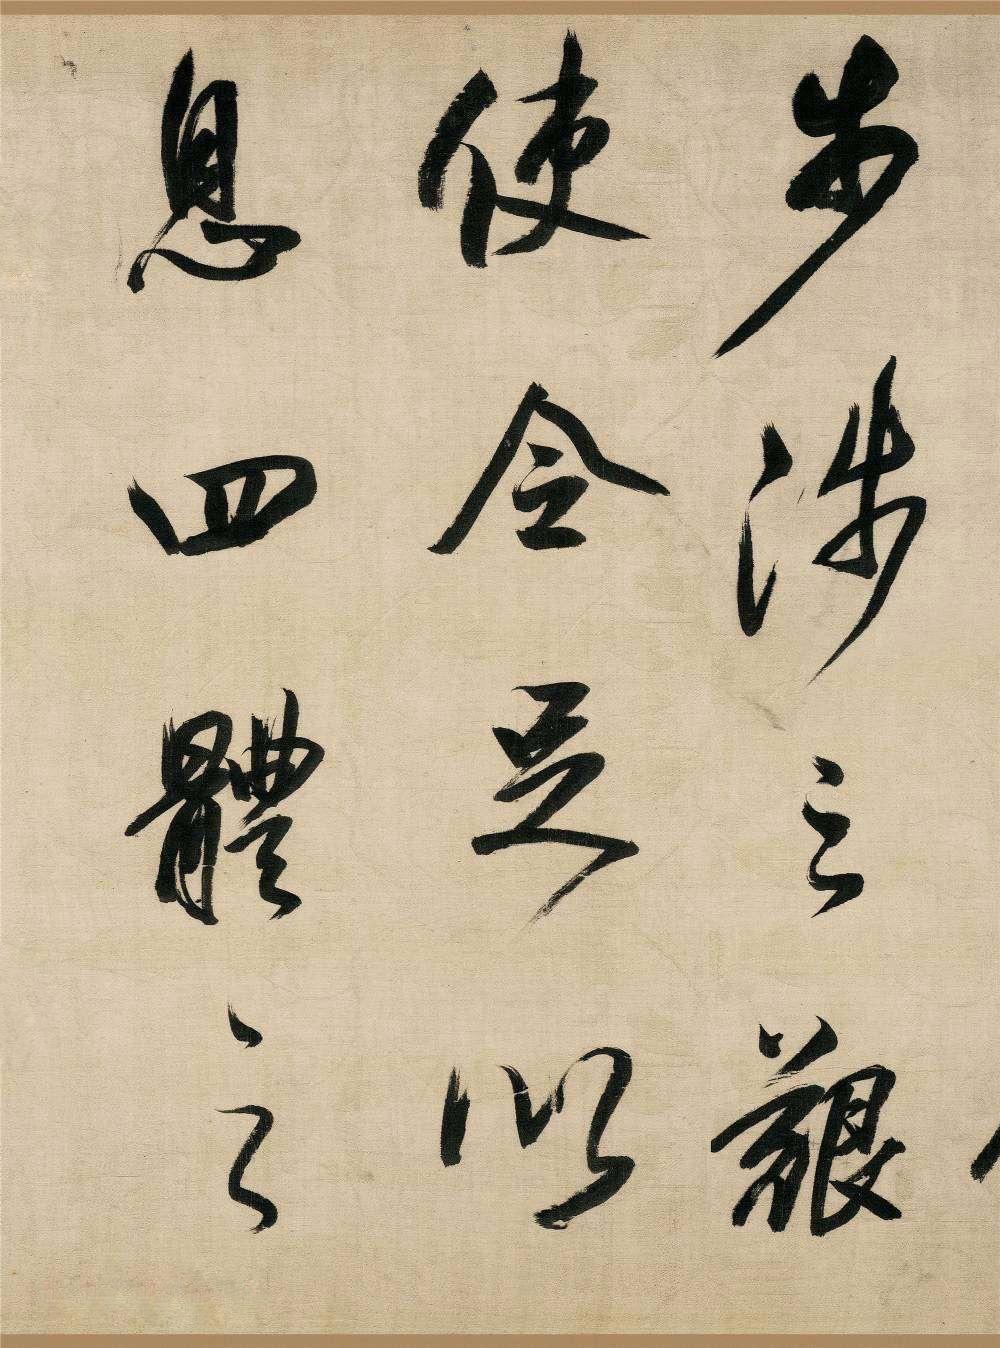 步涉之艱
使令足以
息四體之